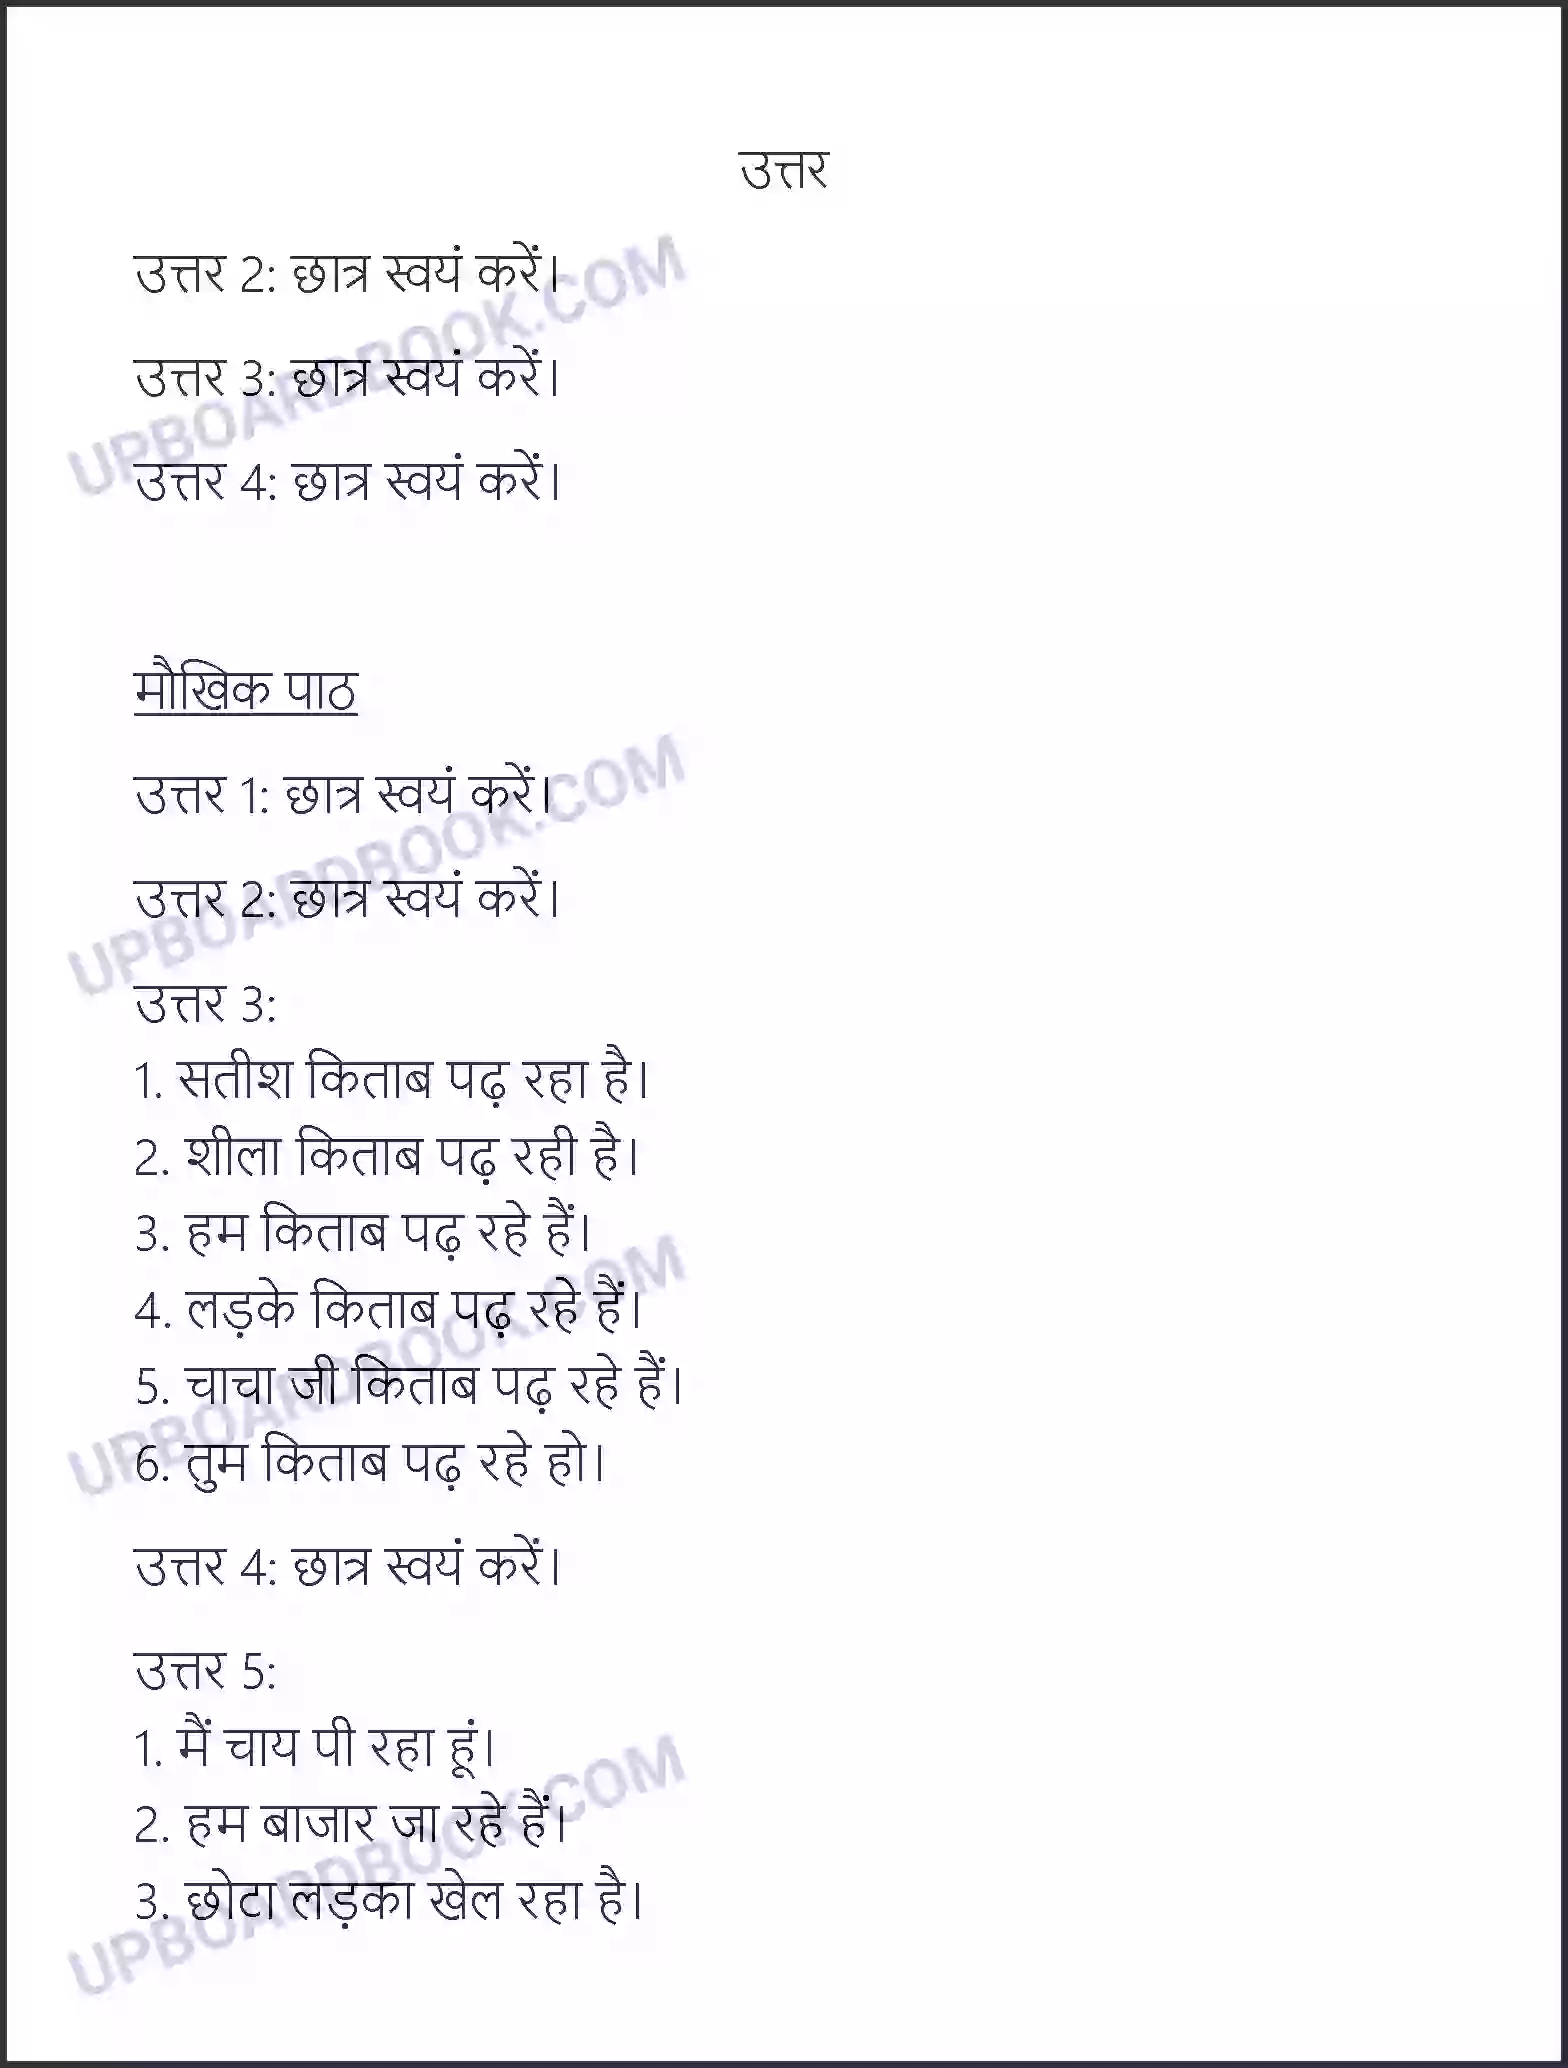 उत्तर
उत्तर 2: छात्र स्वयं करें।
उत्तर 3: छात्र स्वयं करें।
उत्तर 4: छात्र स्वयं करें।
मौखिक पाठ
उत्तर 1: छात्र स्वयं करें।
उत्तर 2: छात्र स्वयं करें।
उत्तर 3:
1. सतीश किताब पढ़ रहा है।
2. शीला किताब पढ़ रही है।
3. हम किताब पढ़ रहे हैं।
4. लड़के किताब पढ़ रहे हैं।
5. चाचा जी किताब पढ़ रहे हैं।
6. तुम किताब पढ़ रहे हो।
उत्तर 4: छात्र स्वयं करें।
उत्तर 5:
1. मैं चाय पी रहा हूं।
2. हम बाजार जा रहे हैं।
3. छोटा लड़का खेल रहा है।
UPBOARDBOOK.COM
UPBOARDBOOK.COM
UPBOARDBOOK.COM
UPBOARDBOOK.COM